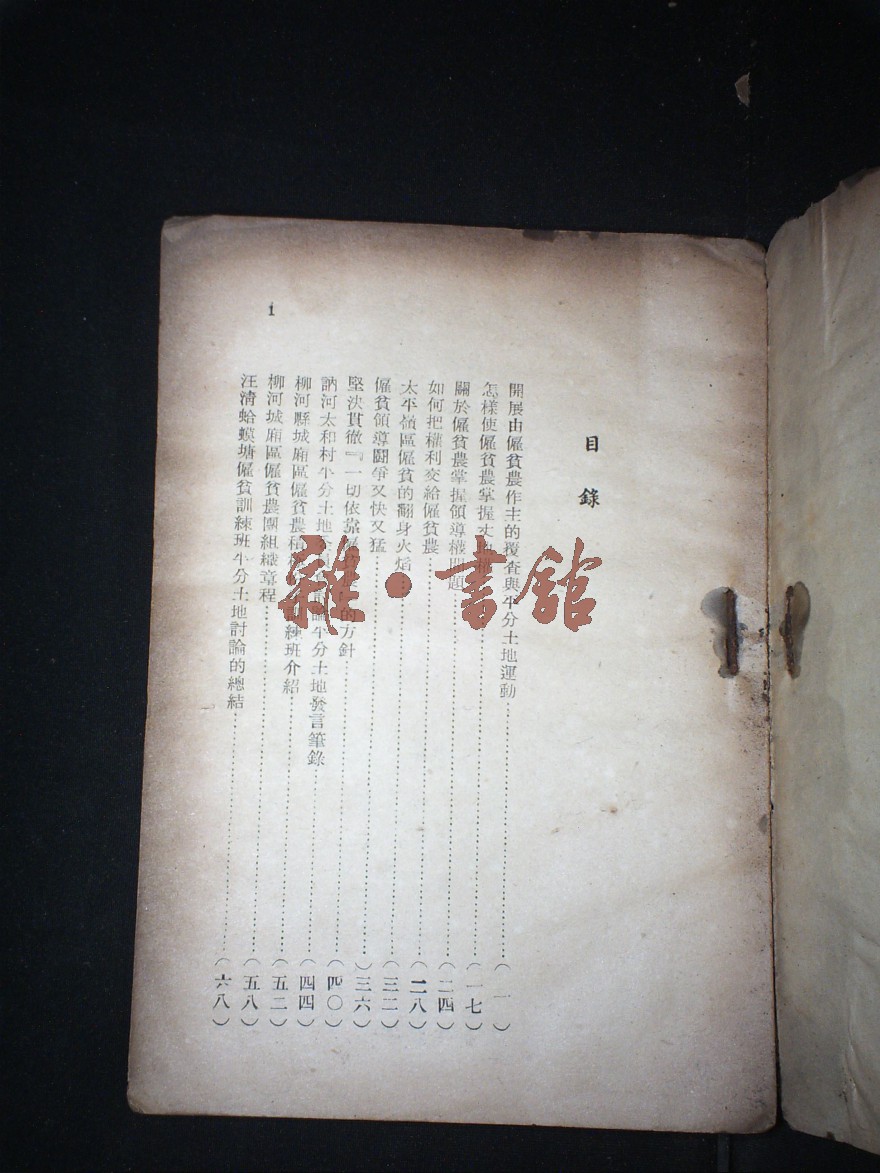 目錄
開展由僱貧農作主的覆査與平分土地運動(一)
怎樣使僱貧農掌握(一七)
關於僱貧農掌握領導權問題(二四)
如何把權利交給僱貧農(二八)
太平嶺區僱貧的翻身火焰(三二)
僱貧領導鬪爭又快又猛(三六)
堅決貫徹『一切依靠的方針(四〇)
訥河太和村平分土地平分土地發言筆錄(四四)
柳河縣城廂區僱貧農練班介紹(五二)
柳河城廂區僱貧農團組織章程(五八)
汪清蛤蟆塘僱貧訓練班平分土地討論的總結(六八)
1
雜·書館